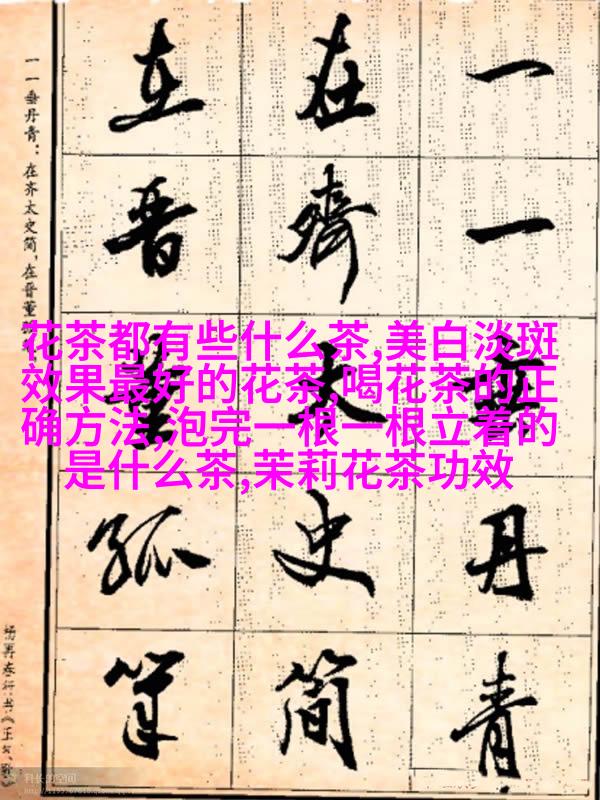 一一垂丹青
在齐太史简
在晋董狐笔
一一垂丹青：在齐太史简，在晋董
杨再春行书《正气歌
花茶都有些什么茶,美白淡斑
效果最好的花茶,喝花茶的正
确方法,泡完一根一根立着的
是什么茶,茉莉花茶功效
科长的空间